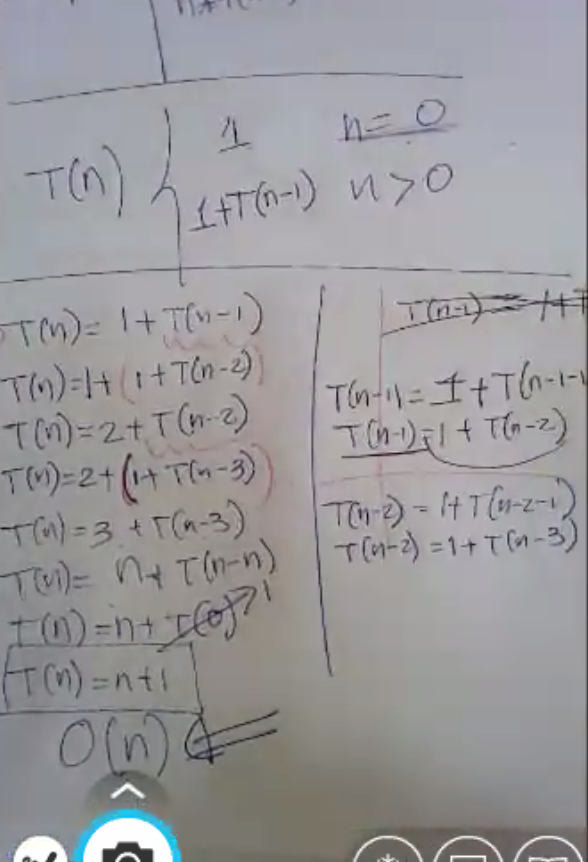 T(n) { 1 n = 0
1+T(n-1) n > 0
T(n) = 1 + T(n-1)
T(n) = 1 + (1 + T(n-2))
T(n) = 2 + T(n-2)
T(n) = 2 + (1 + T(n-3))
T(n) = 3 + T(n-3)
T(n) = n + T(n-n)
T(n) = n + T(0) → 1
T(n) = n+1
O(n) ⇐
T(n-1) = 1+T
T(n-1) = 1 + T(n-1-1
T(n-1) = 1 + T(n-2)
T(n-2) = 1+T(n-2-1)
T(n-2) = 1 + T(n-3)